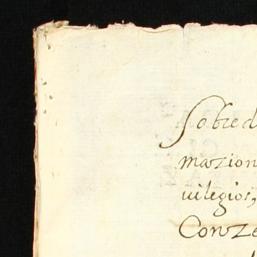 Sobre d
mazion
uilegios,
Conze